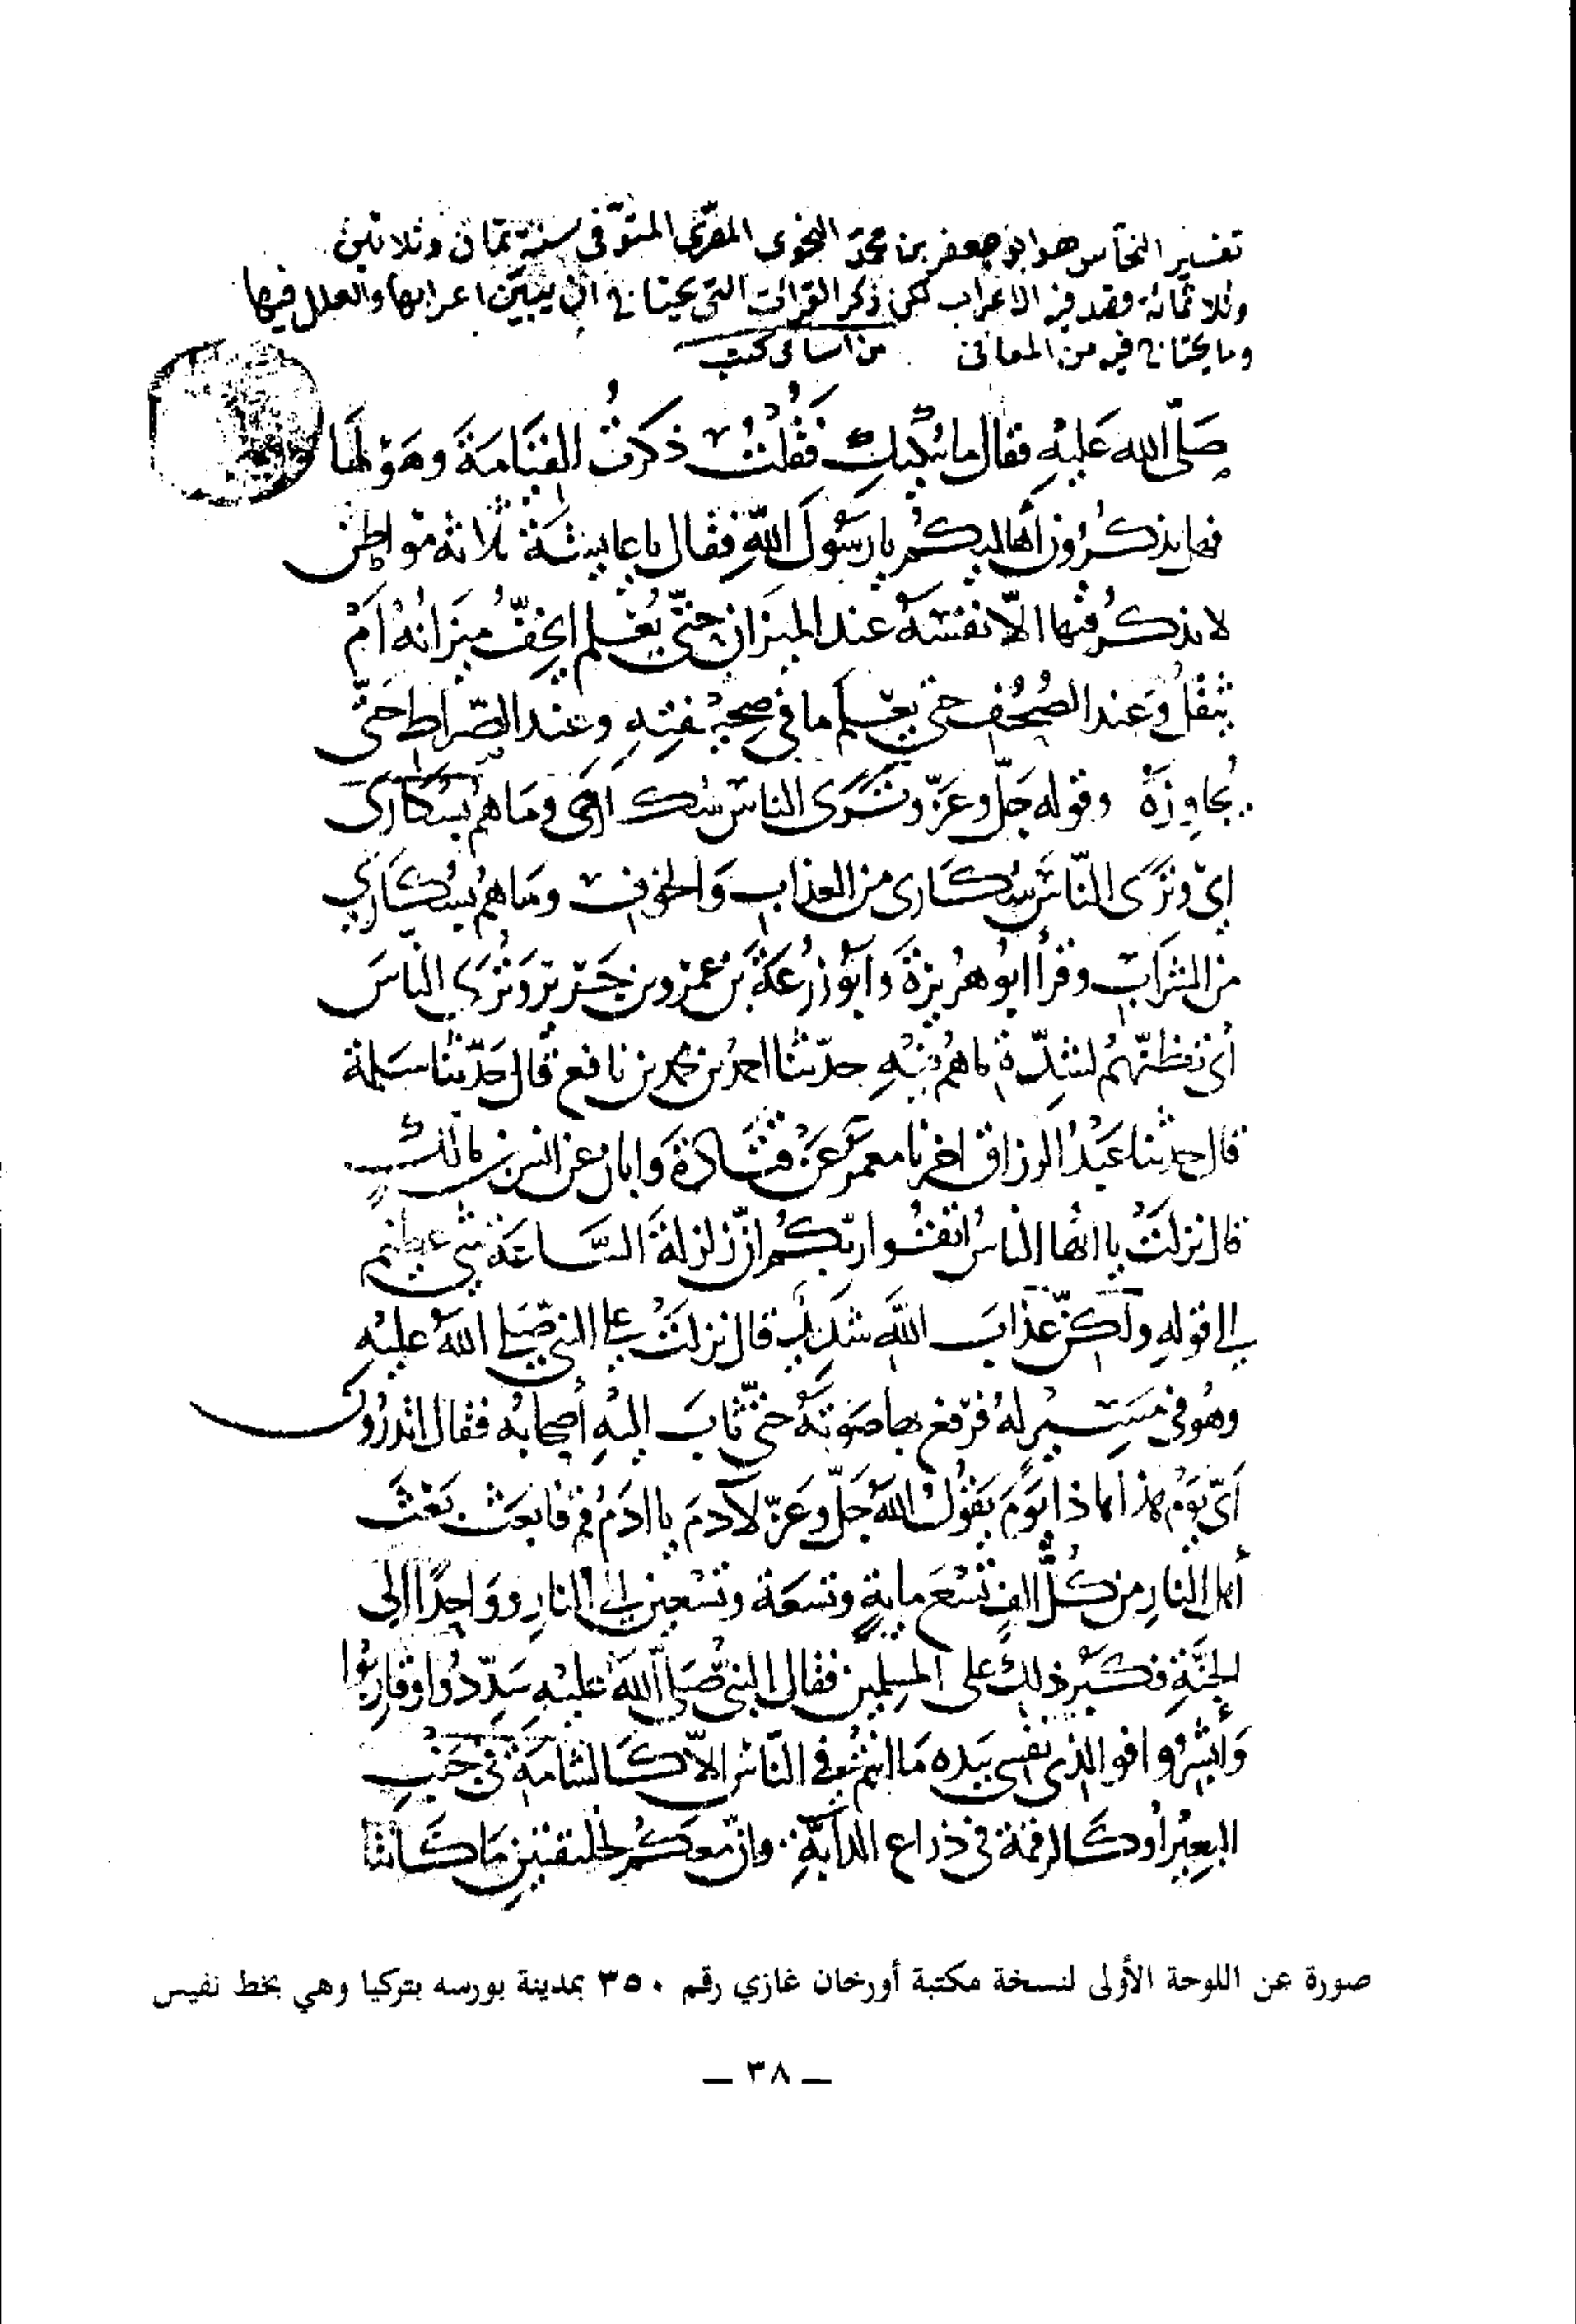 تفسير النحاس هو ابو جعفر بن محمد النحوى المقرى المتوفى سنة ثمان وثلاثين
وثلاثمائة وقصد فيه الاعراب لكن ذكر القرائت التى يحتاج ان يبين اعرابها والعلل فيها
وما يحتاج فيه من المعانى من اسامى كتب
صَلّى الله عَلَيْهِ فقال ما يُبْكيكِ فَقُلْتُ ذكرتُ القِيَامَةَ وهَوْلَها
فهل يذكُرُونَ أهاليكُم يا رَسُولَ اللَّهِ فقال يا عايشَة ثَلاثة مَواطِن
لا يذكُر فيها الاّ نفسَهُ عند الميزان حتّى يَعْلم ايخِفّ مِيزَانُهُ اَمْ
يثقُلُ وَعند الصُحُف حتى يَعْلَم ما فى صحِيفتِهِ وعند الصّراطِ حَتّى
يُجاوِزَهُ وقوله جَلّ وعَزّ وتَرَى الناسَ سُكارَى ومَا هم بسُكَارَى
اى وتَرَى النّاسَ سُكَارى من العذاب وَالخوفِ ومَا هُم بسُكَارى
من الشرَاب وقرأ ابُو هُرَيْرَةَ وَابُو زُرْعَةَ بنُ عَمْرو بن جَرير وَتُرَى الناسَ
أى تظنّهُم لشِدّة ما هُم فيْهِ حدّثنا احمدُ بن محمد بن نافع قال حَدّثنا سَلمة
قال حدثنا عَبْدُ الرزاق اخبرنا معمَر عَنْ قتَادَةَ وَابان عن انس بن مالك
قال نزلَتْ يا ايّها الناسُ اتقُوا ربّكُم انّ زلزلةَ السَّاعَة شىء عظيم
الى قوله ولكنّ عذابَ اللَّه شَدِيدٌ قال نزلَتْ على النبىّ صَلى اللهُ عليْهِ
وهُو فى مَسِيرٍ لهُ فرَفع بها صَوتَهُ حتّى ثابَ اليْهِ أصحابُه فقال اتدرُون
أىّ يَوْم هذا هذا يَوْمَ يَقُولُ اللهُ جَلّ وعَزّ لآدمَ يا ادَمُ قم فابعَث بَعْثَ
أهل النارِ من كُلِّ الفٍ تِسْعَ مايةٍ وتسعَة وتسْعين الى النارِ ووَاحِدًا الى
الجنَّةِ فكَبُر ذلِكَ على المسلمين فقال النبىّ صَلّى اللهُ عليْه سَدِّدُوا وقارِبُوا
وَأبشِرُوا فوالذى نفسى بيَده مَا انتم فى النّاس الاّ كَالشامَةِ فى جَنْبِ
البعِيْرِ أو كَالرقمة فى ذراع الدابّةِ وانّ معكُم لخلِيقتين مَا كَانتا
صورة عن اللوحة الأولى لنسخة مكتبة أورخان غازي رقم ٣٥٠ بمدينة بورسه بتركيا وهي بخط نفيس
— ٣٨ —